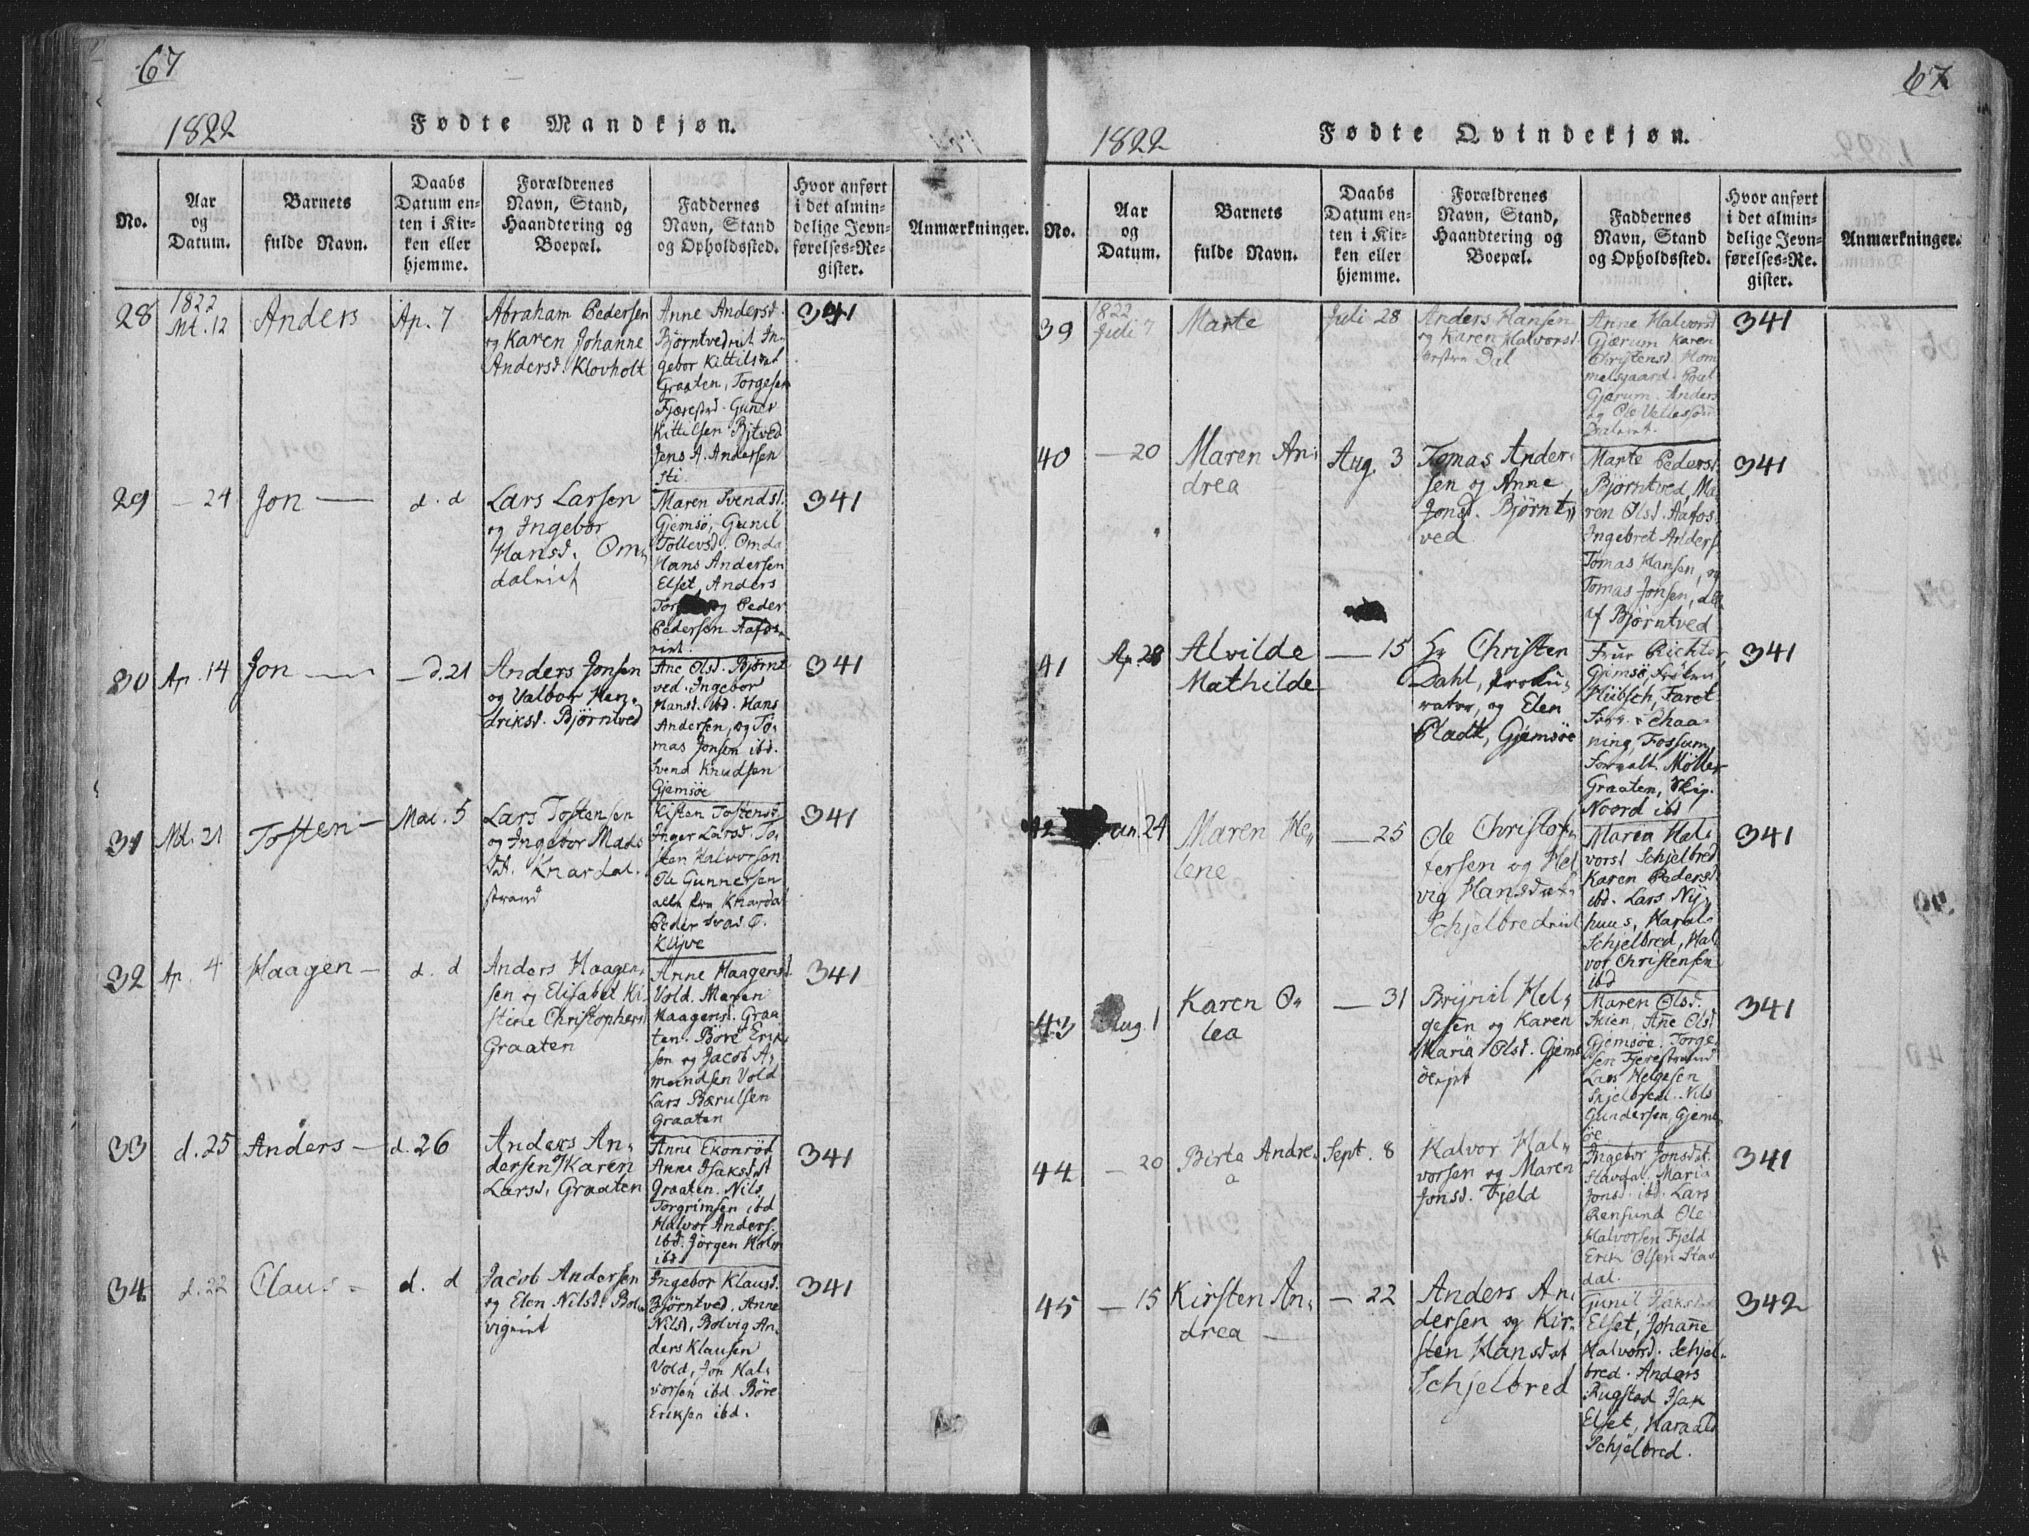 67
1822
Fødte Mandkjøn.
No.
Aar
og
Datum.
Barnets
fulde Navn.
Daabs
Datum en-
ten i Kir-
ken eller
hjemme.
Forældrenes
Navn, Stand,
Haandtering og
Boepæl.
Faddernes
Navn, Stand
og Opholdssted.
Hvor anført
i det almin-
delige Jevn-
førelses-Re-
gister.
Anmærkninger.
28
1822
Mt. 12
Anders
Ap. 7
Abraham Pedersen
og Karen Johanne
Andersd. Klovholt
Anne Andersd.
Bjørntvedeit In-
gebor Kittilsdat
Graaten, Torgesen
Fjærestrd. Guner
Kittilsen Bjtved
Jens A. Andersen
Sti.
341
29
— 24
Jon —
d. d
Lars Larsen
og Ingebor
Hansd. Om„
dalseit
Maren Svendsd.
Gjemsø, Gunil
Tollevsd. Omda
Hans Andersen
Elset, Anders
og Peder
Pedersen Aafos„
eiet.
341
30
Ap. 14
Jon —
— d. 21
Anders Jonsen
og Valbor Hen„
driksd. Bjørntved
Ane Olsd. Bjørnt
ved. Ingebor
Hansd. ibd. Hans
Andersen, og To„
mas Jonsen ibd.
Svend Knudsen
Gjemsøe
341
31
Mt. 21
Tosten —
Mai. 5
Lars Tostensen
og Ingebor Mads
dt. Knardal.
strand
Kisten Tostensd.
Inger Larsd. To„
sten Halvorsen
Ole Gunnersen
alle fra Knardal
Peder
Klyve
341
32
Ap. 4
Haagen —
d. d
Anders Haagen„
sen og Elisabet Ki„
stine Christophersd
Graaten
Anne Haagensd.
Vold. Maren
Haagensd. Graa
ten. Böre Erik„
sen og Jacob A„
mundsen Vold
Lars Bærulsen
Graaten
341
33
d. 25
Anders —
d. 26
Anders An„
dersen Karen
Larsd, Graaten
Anne Ekonrød
Anne Isaksdt
Graaten. Nils
Torgrimsen ibd
Halvor Anders.
ibd. Jörgen Holm
ibd
341
34
d. 22
Claus —
d. d
Jacob Andersen
og Elen Nilsd. Bol„
vigeiet
Ingebor Klausd.
Bjørntved. Anne
Nilsd, Bolvig An„
ders Klausen
Vold, Jon Hal„
vorsen ibd. Böre
Eriksen ibd.
341
67
1822
Fødte Qvindekjøn.
No.
Aar
og
Datum.
Barnets
fulde Navn.
Daabs
Datum en-
ten i Kir-
ken eller
hjemme.
Forældrenes
Navn, Stand,
Haandtering og
Boepæl.
Faddernes
Navn, Stand
og Opholdssted.
Hvor anført
i det almin-
delige Jevn-
førelses-Re-
gister.
Anmærkninger.
39
1822
Juli 7
Marte
Juli 28
Anders Hansen
og Karen Halvorsd.
Dal
Anne Halvorsd
Gjærum Karen
Christensd. Hom
melsgaard. Poul
Gjærum. Anders
og Ole
341
40
— 20
Maren An„
drea
Aug. 3
Tomas Ander„
sen og Anne
Jonsd. Bjørnt„
ved
Marte Pedersd.
Bjørntved, Ma„
ren Olsd. Aafos.
Ingebret Anders
Tomas Hansen, og
Tomas Jonsen, alle
af Bjørntved
341
41
Ap. 28
Alvilde
Mathilde
— 15
Hr Christen
Dahl, Proku„
rator, og Elen
Pladt, Gjemsøe
Frue Richter,
Gjemsø, Frøken
Hübsch, Faret
ning, Fossum,
Forvalt. Møller
Graaten, Skip.
Noord ibd
341
42
Jun. 24
Maren He„
lene
— 25
Ole Christof„
fersen og Hel
vig Hansdat.
Schjelbredeiet
Maren Hal„
vorsd Schjelbred
Karen Pedersd.
ibd. Lars Ny„
huus, Haral„
Schjelbred, Hal„
vor Christensen
ibd
341
43
Aug. 1
Karen O„
lea
— 31
Brynil Hel„
gesen og Karen
Maria Olsd. Gjems
öeejet
Maren Olsd.
Skien, Ane Olsd
Gjemsøe. Torge„
sen Fjerestrand
Lars Helgesen
Skjelbred. Nils
Gundersen, Gjems
öe
341
44
— 20
Birte Andre„
a
Sept. 8
Halvor Hal„
vorsen og Maren
Jonsd. Fjeld
Ingebor Jonsdt.
Maria
Jonsd. ibd. Lars
Rensund Ole
Halvorsen Fjeld
Erik Olsen Stav
dal.
341
45
— 15
Kirsten An„
drea —
— 22
Anders An„
dersen og Kir„
sten Hansdat
Schjelbred
Gunil Isaksd.
Elset, Johane
Halvorsd. Schjel„
bred. Anders
Rugstad Isak
Elset, Haraald
Schjelbred.
342